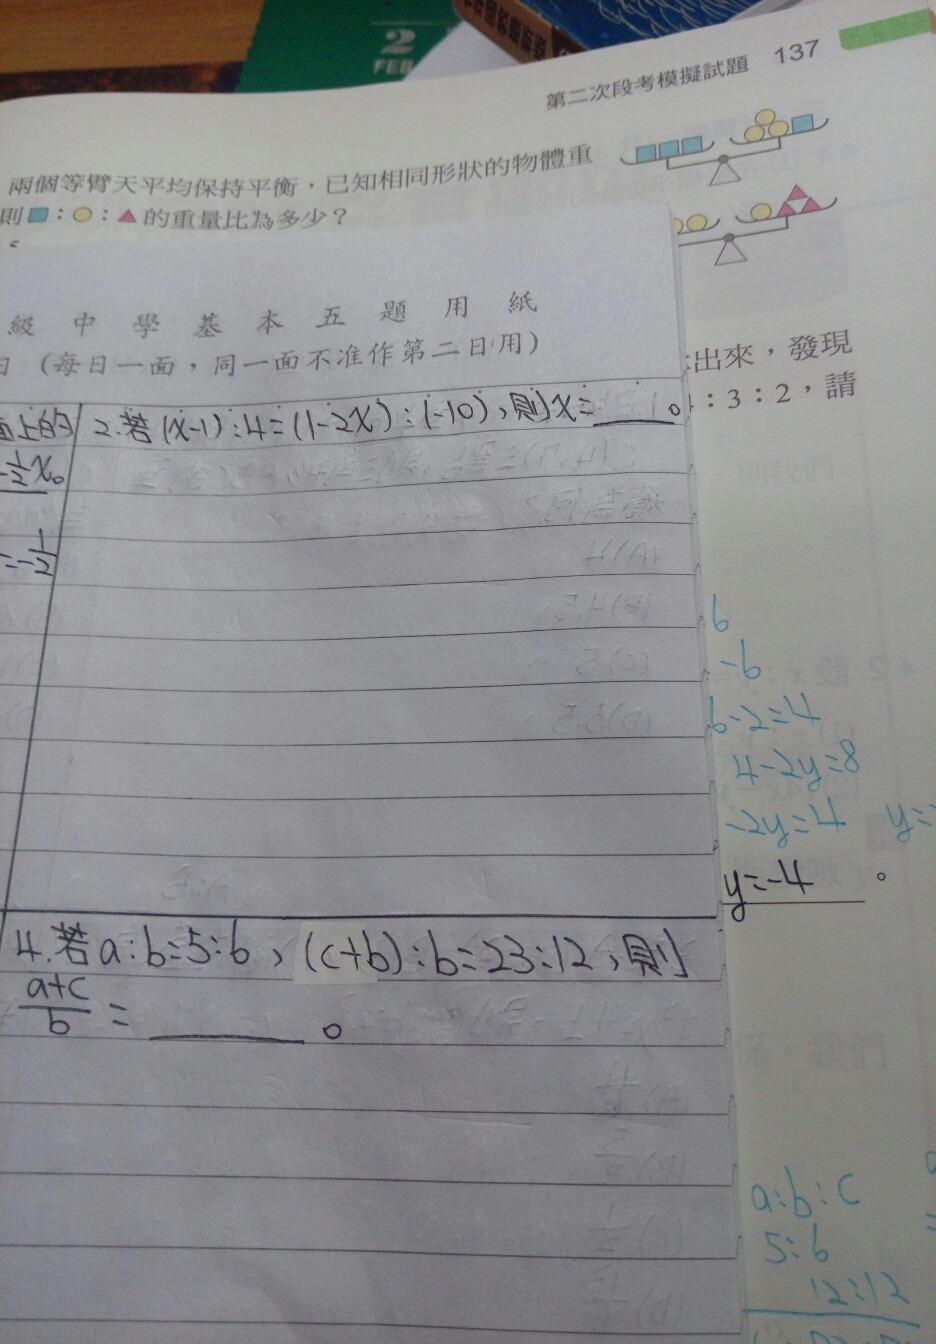 2
FEB
第二次段考模擬試題 137
兩個等臂天平均保持平衡，已知相同形狀的物體重
則■：●：▲的重量比為多少？
級中學基本五題用紙
日（每日一面，同一面不准作第二日用）
出來，發現
：3：2，請
面上的
-1/2x。
=-1/2
2.若(x-1):4=(1-2x):(-10)，則x=____。
6
-6
6-2=4
4-2y=8
-2y=4 y=
y=-4 。
4.若a:b=5:6，(c+b):b=23:12，則
(a+c)/b=____。
a:b:c
5:6
12:12